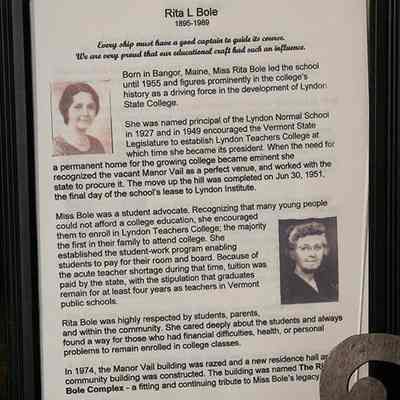 Rita L Bole
1895-1989
Every ship must have a good captain to guide its course.
We are very proud that our educational craft had such an influence.
Born in Bangor, Maine, Miss Rita Bole led the school
until 1955 and figures prominently in the college's
history as a driving force in the development of Lyndon
State College.
She was named principal of the Lyndon Normal School
in 1927 and in 1949 encouraged the Vermont State
Legislature to establish Lyndon Teachers College at
which time she became its president. When the need for
a permanent home for the growing college became eminent she
recognized the vacant Manor Vail as a perfect venue, and worked with the
state to procure it. The move up the hill was completed on Jun 30, 1951,
the final day of the school's lease to Lyndon Institute.
Miss Bole was a student advocate. Recognizing that many young people
could not afford a college education, she encouraged
them to enroll in Lyndon Teachers College; the majority
the first in their family to attend college. She
established the student-work program enabling
students to pay for their room and board. Because of
the acute teacher shortage during that time, tuition was
paid by the state, with the stipulation that graduates
remain for at least four years as teachers in Vermont
public schools.
Rita Bole was highly respected by students, parents,
and within the community. She cared deeply about the students and always
found a way for those who had financial difficulties, health, or personal
problems to remain enrolled in college classes.
In 1974, the Manor Vail building was razed and a new residence hall and
community building was constructed. The building was named The
Bole Complex - a fitting and continuing tribute to Miss Bole's legacy